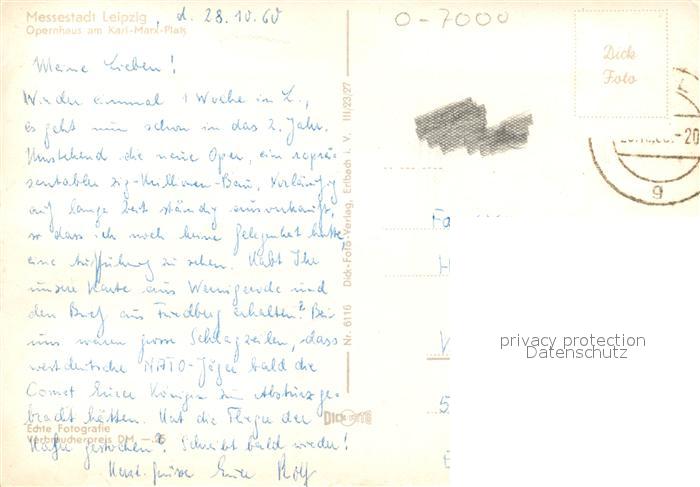 Messestadt Leipzig, d. 28.10.60
Opernhaus am Karl-Marx-Platz
Meine Lieben!
Wieder einmal 1 Woche in L.,
es geht nun schon in das 2. Jahr.
Umstehend die neue Oper, ein reprä-
sentabler zig-Millionen-Bau, vorläufig
auf lange Zeit ständig ausverkauft,
so dass ich noch keine Gelegenheit hatte
eine Aufführung zu sehen. Habt Ihr
unsere Karte aus Wernigerode und
den Brief aus Friedberg erhalten? Bei
uns waren grosse Schlagzeilen, dass
westdeutsche NATO-Jäger bald die
Comet Eurer Königin zum Absturz ge-
bracht hätten. Hat die Flieger der
Hafer gestochen? Schreibt bald wieder!
Herzl. Grüsse Euer Rolf
Echte Fotografie
Verbraucherpreis DM -.
Nr. 6116 Dick-Foto-Verlag, Erlbach i. V. III/23/27
DICK
0-7000
Dick
Foto
-20
g
Fa
H
V
5
privacy protection
Datenschutz